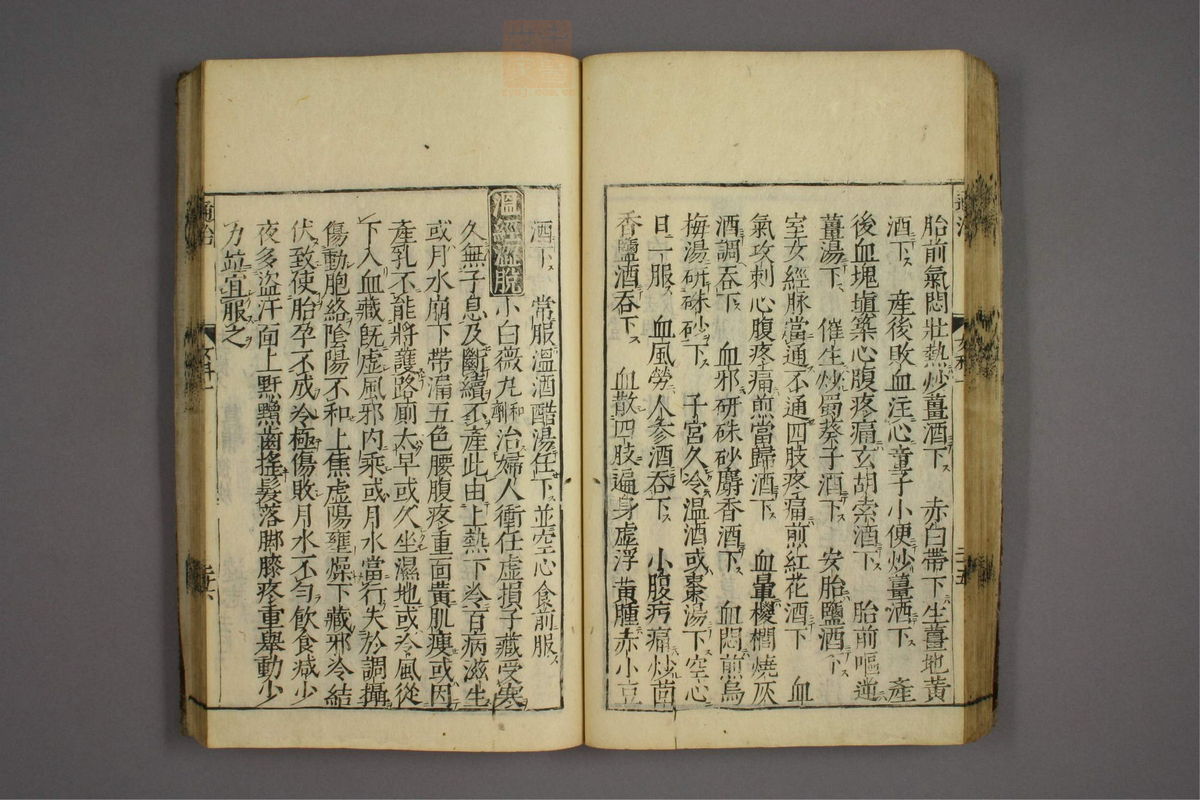 胎前氣悶壯熱炒薑酒下 赤白帶下生薑地黃
酒下 產後敗血注心童子小便炒薑酒下 產
後血塊塡築心腹疼痛玄胡索酒下 胎前嘔逆
薑湯下 催生炒蜀葵子酒下 安胎鹽酒下
室女經脉當通不通四肢疼痛煎紅花酒下 血
氣攻刺心腹疼痛煎當歸酒下 血暈椶櫚燒灰
酒調吞下 血邪研硃砂麝香酒下 血悶煎烏
梅湯研硃砂下 子宮久冷温酒或棗湯下空心
日一服 血風勞人參酒吞下 小腹㽱痛炒茴
香鹽酒吞下 血散四肢遍身虛浮黃腫赤小豆
酒下 常服溫酒醋湯任下並空心食前服
溫經 小白薇丸和劑治婦人衝任虛損子藏受寒
久無子息及斷續不產此由上熱下冷百病滋生
或月水崩下帶漏五色腰腹疼重面黃肌瘦或因
產乳不能將護路廁太早或久坐濕地或冷風從
下入血藏旣虛風邪內乘或月水當行失於調攝
傷動胞絡陰陽不和上焦虛陽壅燥下藏邪冷結
伏致使胎孕不成冷極傷敗月水不勻飮食減少
夜多盜汗面上䵟䵳齒搖髮落脚膝疼重舉動少
力並宜服之
通治
女科一